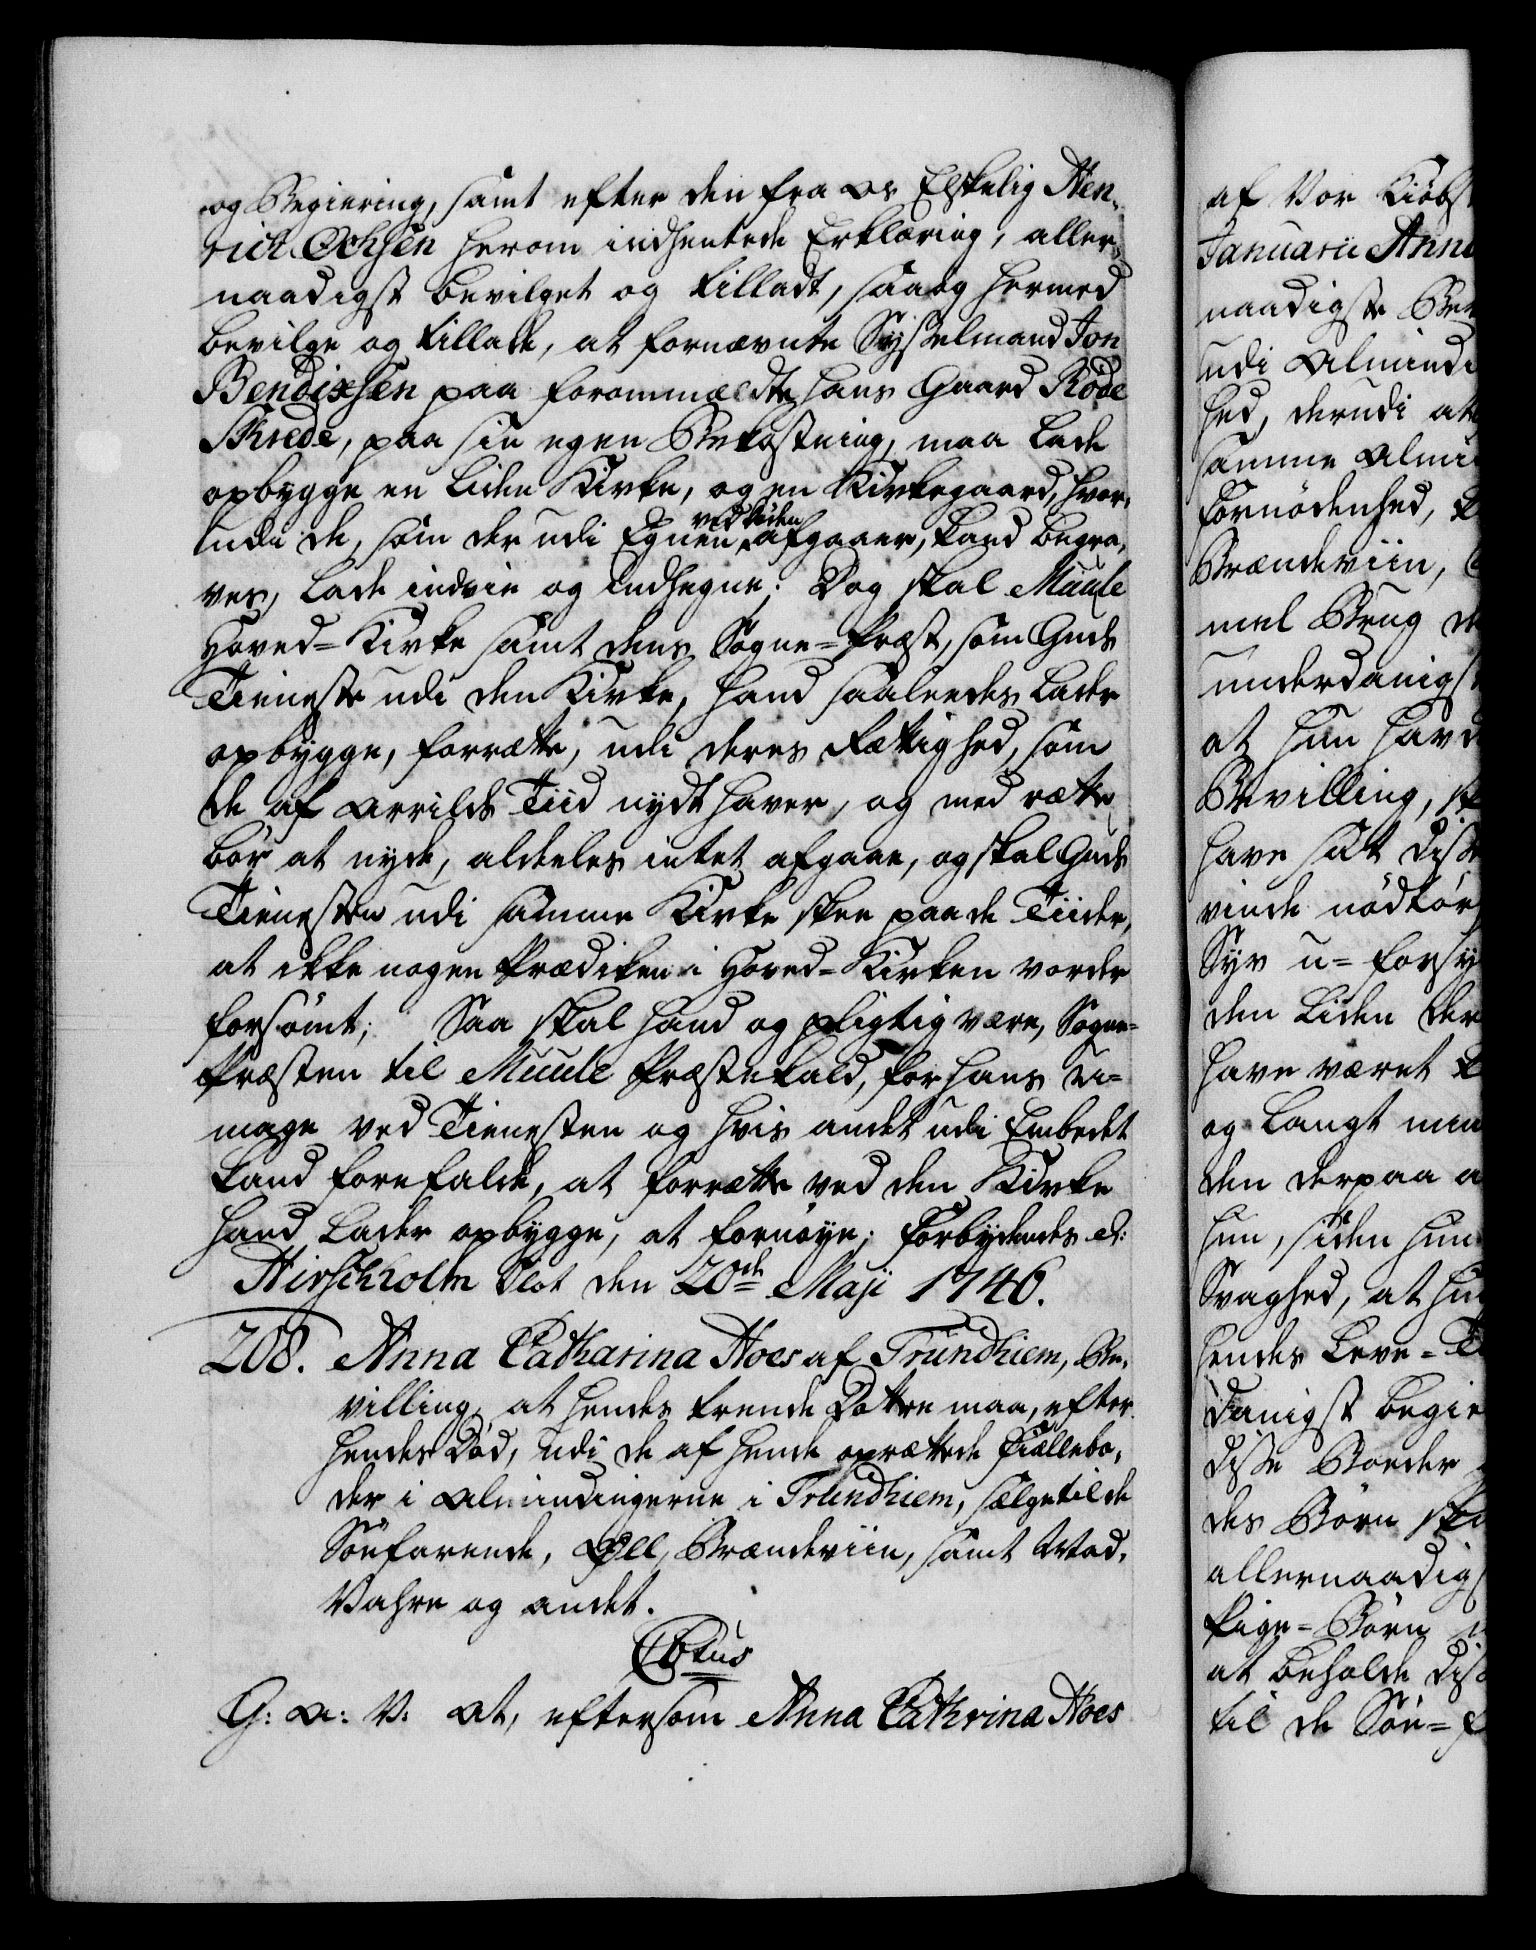 og Begiering, samt efter den fra os Elskelig Hen-
rich Ochsen herom indhentede Erklæring, aller-
naadigst bevilget og tilladt, saa og hermed
bevilge og tillade, at fornævnte Sysselmand Jon
Bendixsen paa forommældte hans Gaard Röde
Skrede, paa sin egen Bekostning, maa lade
opbygge en liden Kirke, og en Kirkegaard, hvor-
udi de, som der udi Egnen ved døden afgaaer, kand begra-
ves, lade indvie og indhegne; Dog skal Muule
Hoved-Kirke samt dens Sogne-Præst, som Guds
Tieneste udi den Kirke, hand saaledes lader
opbygge, forrette, udi deres Rettighed, som
de af Arrilds Tiid nydt haver, og med rette
bör at nyde, aldeeles intet afgaae, og skal Guds
Tienesten udi samme Kirke skee paa de Tiider,
at ikke nogen Prædiken i Hoved-Kirken vorder
forsömt; Saa skal hand og pligtig være, Sogne-
Præsten til Muule Præstekald, for hans U-
mage ved Tienesten og hvis andet udi Embedet
kand forefalde, at forrette ved den Kirke
hand lader opbygge, at fornøye; Forbydendes etc:
Hirschholm Slot den 20de Maji 1746.
208. Anna Catharina Hoes af Trundhiem, Be-
villing, at hendes trende Döttre maa, efter
hendes Död, udi de af hende oprettede Fiællebo-
der i Almindingerne i Trundhiem, sælge til de
Söefarende, Öll, Brændeviin, samt Mad-
Vahre og andet.
C5tus
G: A: V. At, eftersom Anna Cathrina Hoes
af Vor Kiöbst
Januarii Anno
naadigste Bev
udi Almindi
hed, derudi at
samme Almi
Fornödenhed,
Brændeviin,
mel Brug
underdanigst
at hun hav
Bevilling,
have sat disse
vinde nödtör
Syv u-forsy
den liden der
have været
og langt min
den derpaa a
hun, siden hun
Svaghed, at hu
hendes Leve-T
danigst begie
disse Boeder
des Börn ska
allernaadigs
Pige-Börn
at beholde diss
til de Söe-f